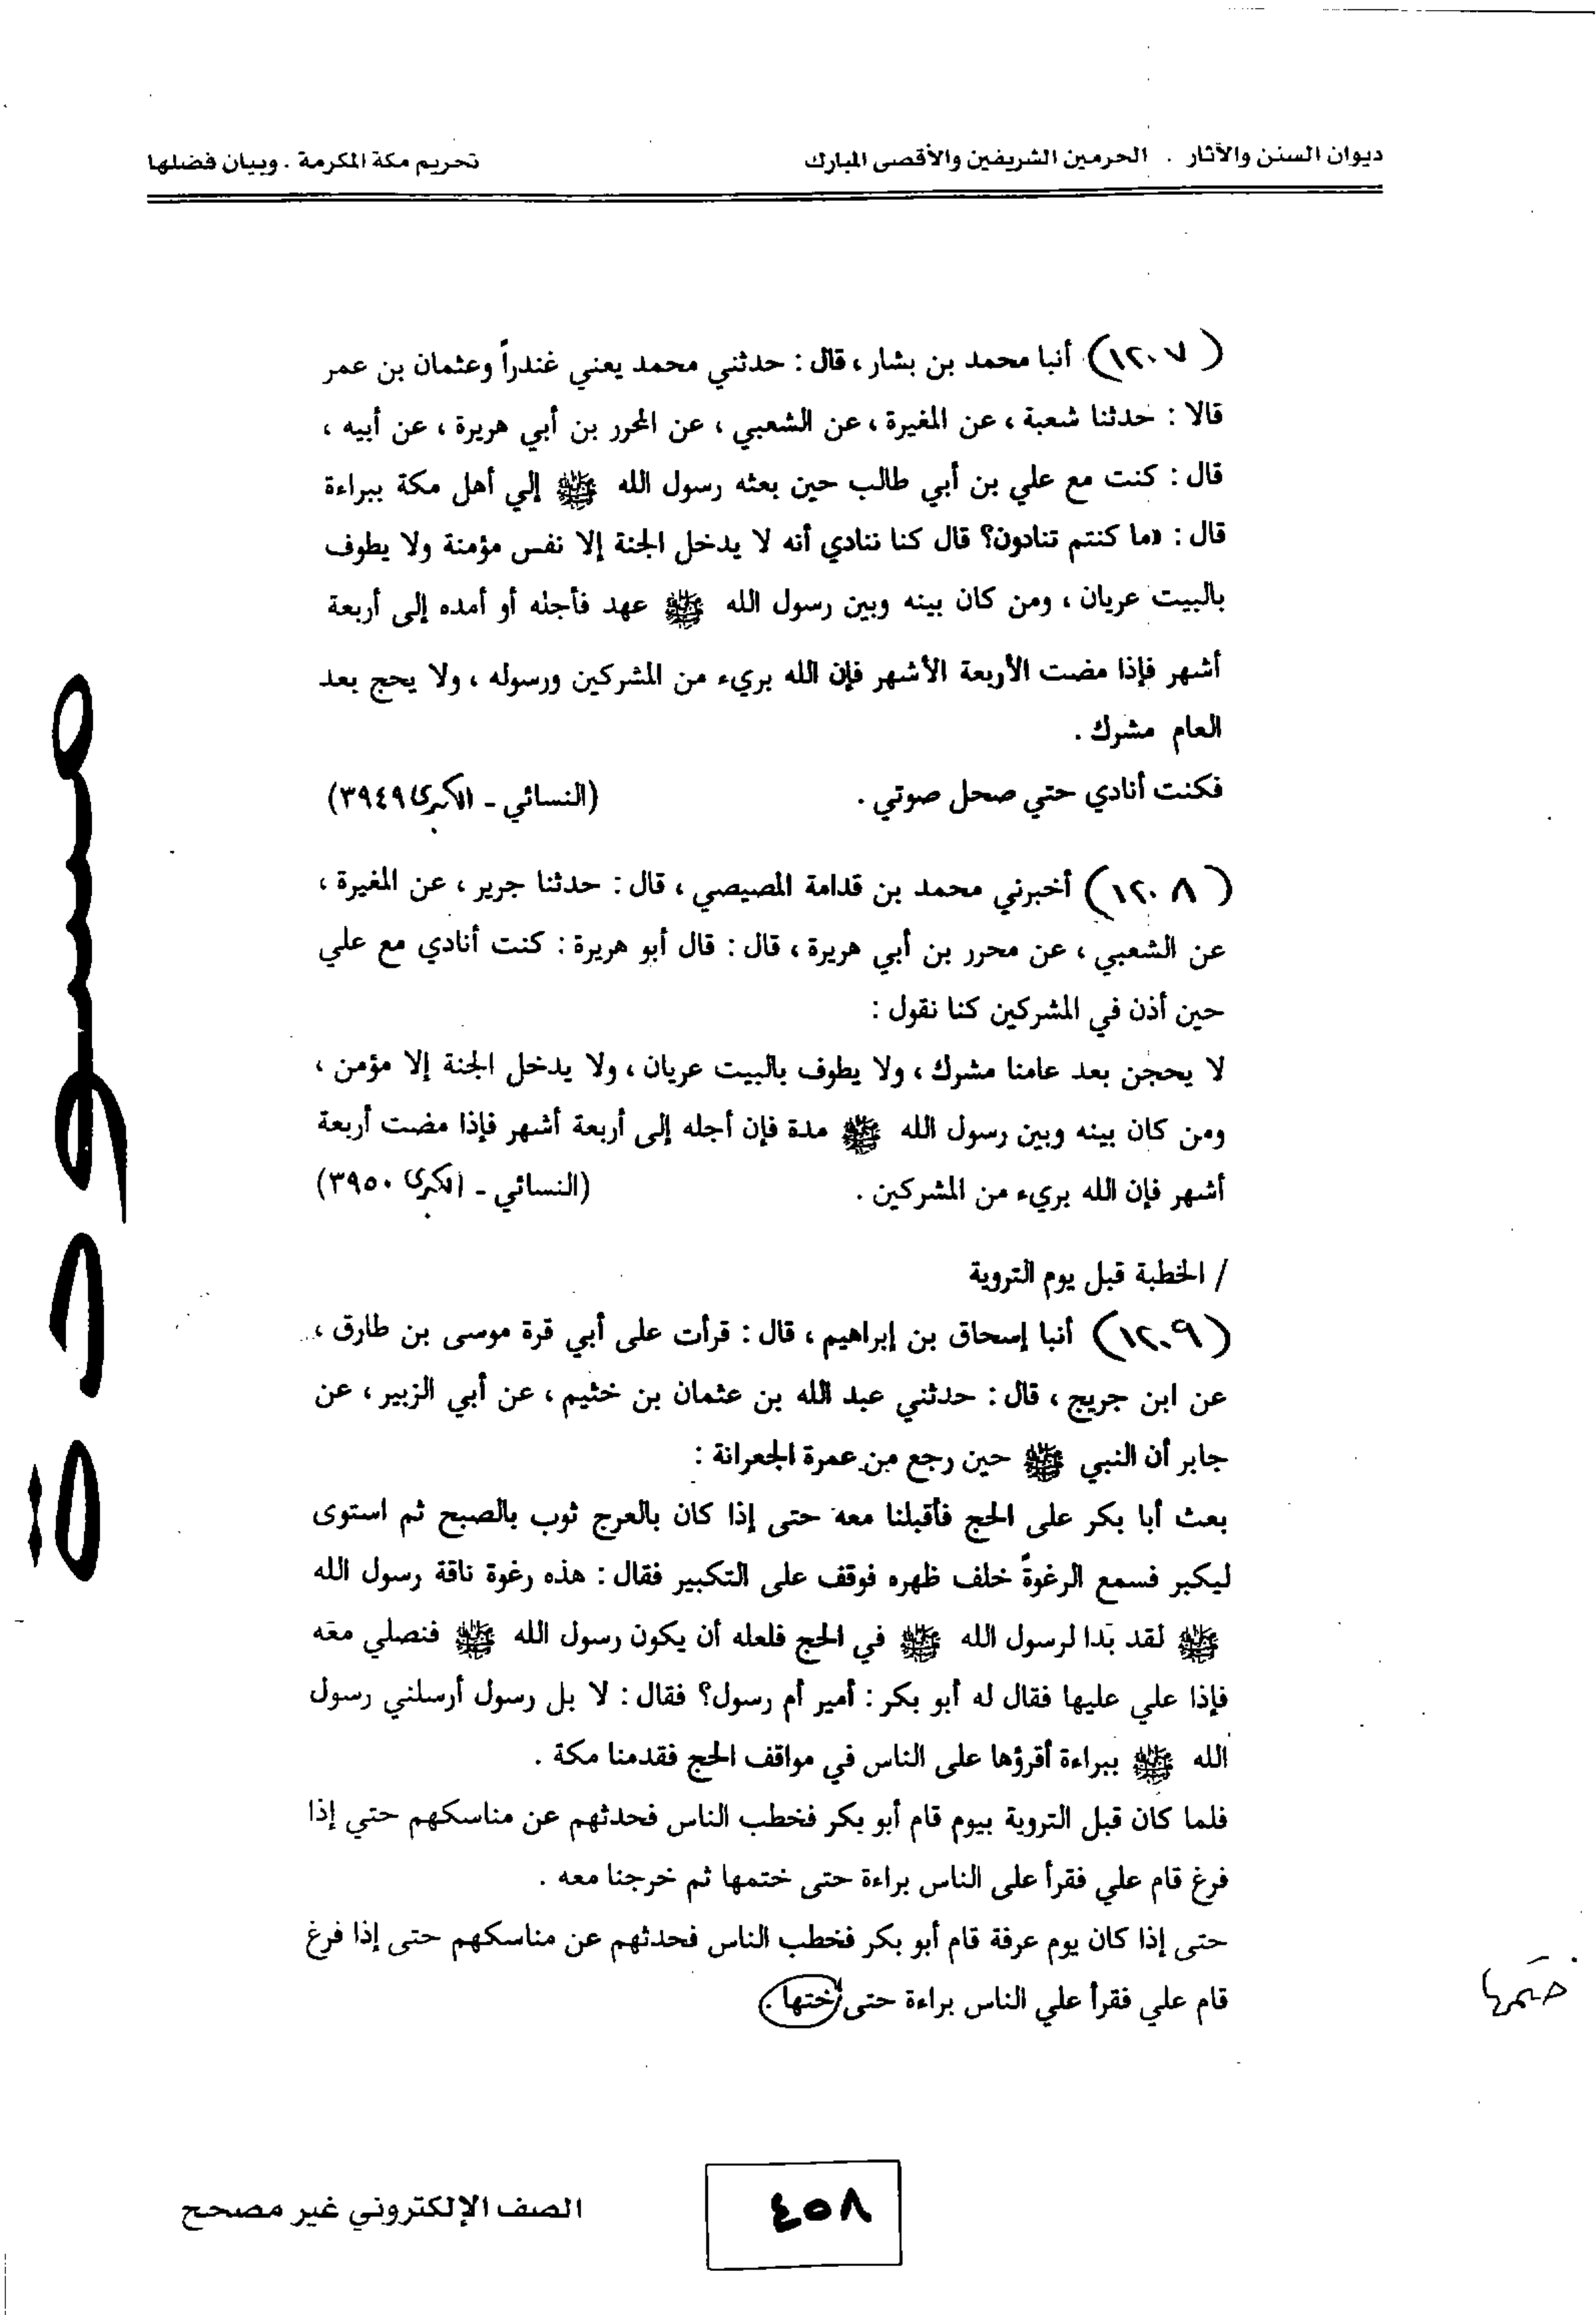 ديوان السنن والآثار . الحرمين الشريفين والأقصى المبارك
تحريم مكة المكرمة . وبيان فضلها
(١٢٠٧) أنبا محمد بن بشار ، قال : حدثني محمد يعني غندراً وعثمان بن عمر
قالا : حدثنا شعبة ، عن المغيرة ، عن الشعبي ، عن المحرر بن أبي هريرة ، عن أبيه ،
قال : كنت مع علي بن أبي طالب حين بعثه رسول الله ﷺ إلي أهل مكة ببراءة
قال : «ما كنتم تنادون؟ قال كنا ننادي أنه لا يدخل الجنة إلا نفس مؤمنة ولا يطوف
بالبيت عريان ، ومن كان بينه وبين رسول الله ﷺ عهد فأجله أو أمده إلى أربعة
أشهر فإذا مضت الأربعة الأشهر فإن الله بريء من المشركين ورسوله ، ولا يحج بعد
العام مشرك .
فكنت أنادي حتي صحل صوتي . (النسائي - الكبرى ٣٩٤٩)
(١٢٠٨) أخبرني محمد بن قدامة المصيصي ، قال : حدثنا جرير ، عن المغيرة ،
عن الشعبي ، عن محرر بن أبي هريرة ، قال : قال أبو هريرة : كنت أنادي مع علي
حين أذن في المشركين كنا نقول :
لا يحجن بعد عامنا مشرك ، ولا يطوف بالبيت عريان ، ولا يدخل الجنة إلا مؤمن ،
ومن كان بينه وبين رسول الله ﷺ مدة فإن أجله إلى أربعة أشهر فإذا مضت أربعة
أشهر فإن الله بريء من المشركين . (النسائي - الكبرى ٣٩٥٠)
/ الخطبة قبل يوم التروية
(١٢٠٩) أنبا إسحاق بن إبراهيم ، قال : قرأت على أبي قرة موسى بن طارق ،
عن ابن جريج ، قال : حدثني عبد الله بن عثمان بن خثيم ، عن أبي الزبير ، عن
جابر أن النبي ﷺ حين رجع من عمرة الجعرانة :
بعث أبا بكر على الحج فأقبلنا معه حتى إذا كان بالعرج ثوب بالصبح ثم استوى
ليكبر فسمع الرغوةً خلف ظهره فوقف على التكبير فقال : هذه رغوة ناقة رسول الله
ﷺ لقد بَدا لرسول الله ﷺ في الحج فلعله أن يكون رسول الله ﷺ فنصلي معَه
فإذا علي عليها فقال له أبو بكر : أمير أم رسول؟ فقال : لا بل رسول أرسلني رسول
الله ﷺ ببراءة أقرؤها على الناس في مواقف الحج فقدمنا مكة .
فلما كان قبل التروية بيوم قام أبو بكر فخطب الناس فحدثهم عن مناسكهم حتي إذا
فرغ قام علي فقرأ على الناس براءة حتى ختمها ثم خرجنا معه .
حتى إذا كان يوم عرفة قام أبو بكر فخطب الناس فحدثهم عن مناسكهم حتى إذا فرغ
قام علي فقرأ علي الناس براءة حتى ختها .
ختمها
مسودة
٤٥٨
الصف الإلكتروني غير مصحح